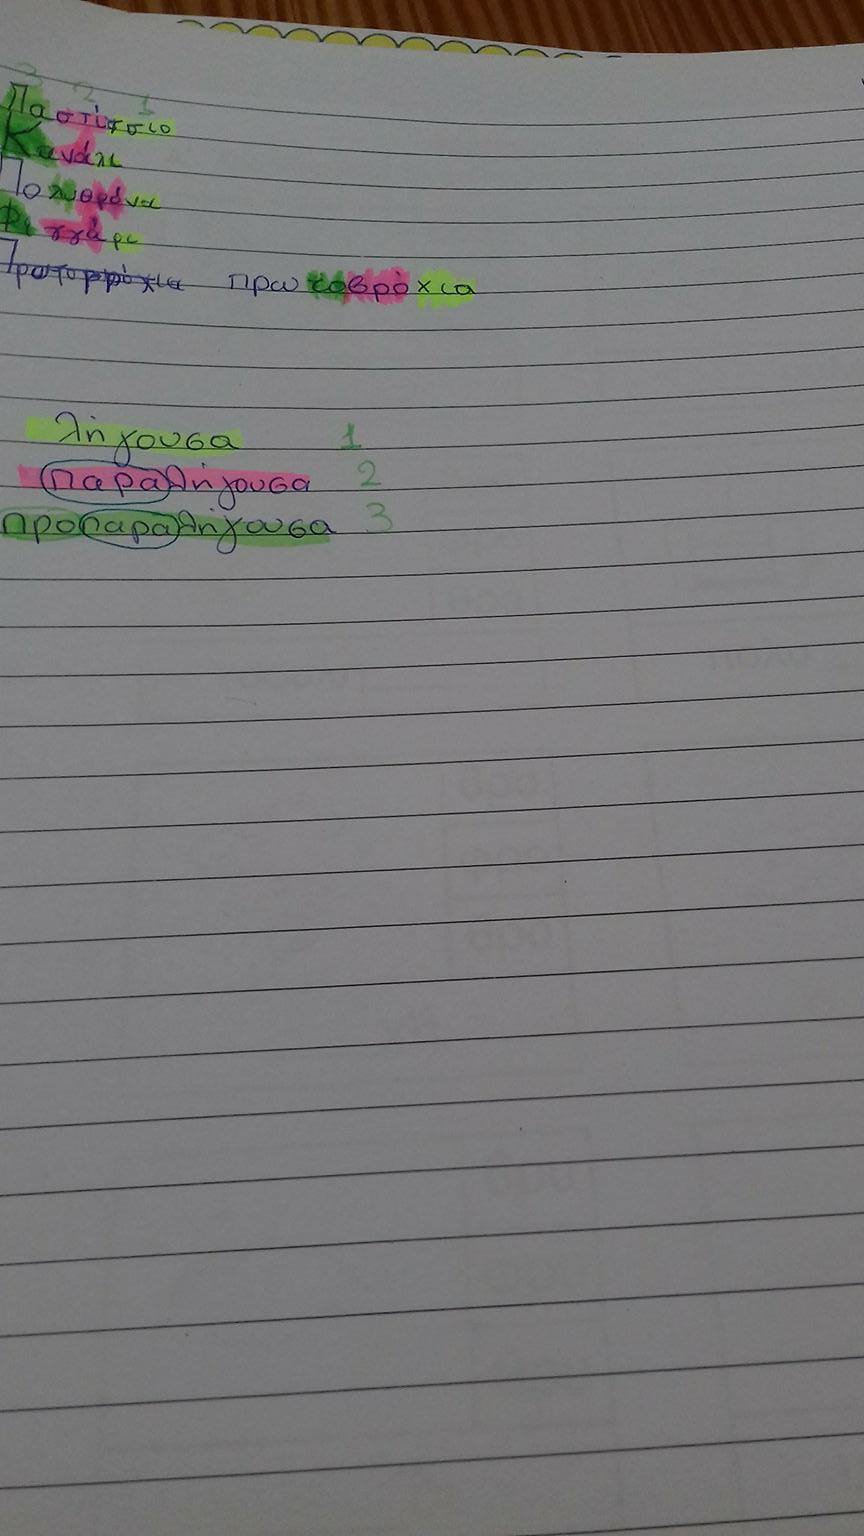 3 2 1
Παστίτσιο
Κανάλι
Πολυθρόνα
Φεγγάρι
Πρωτορρόχια πρωτοβρόχια
λήγουσα 1
παραλήγουσα 2
προπαραλήγουσα 3